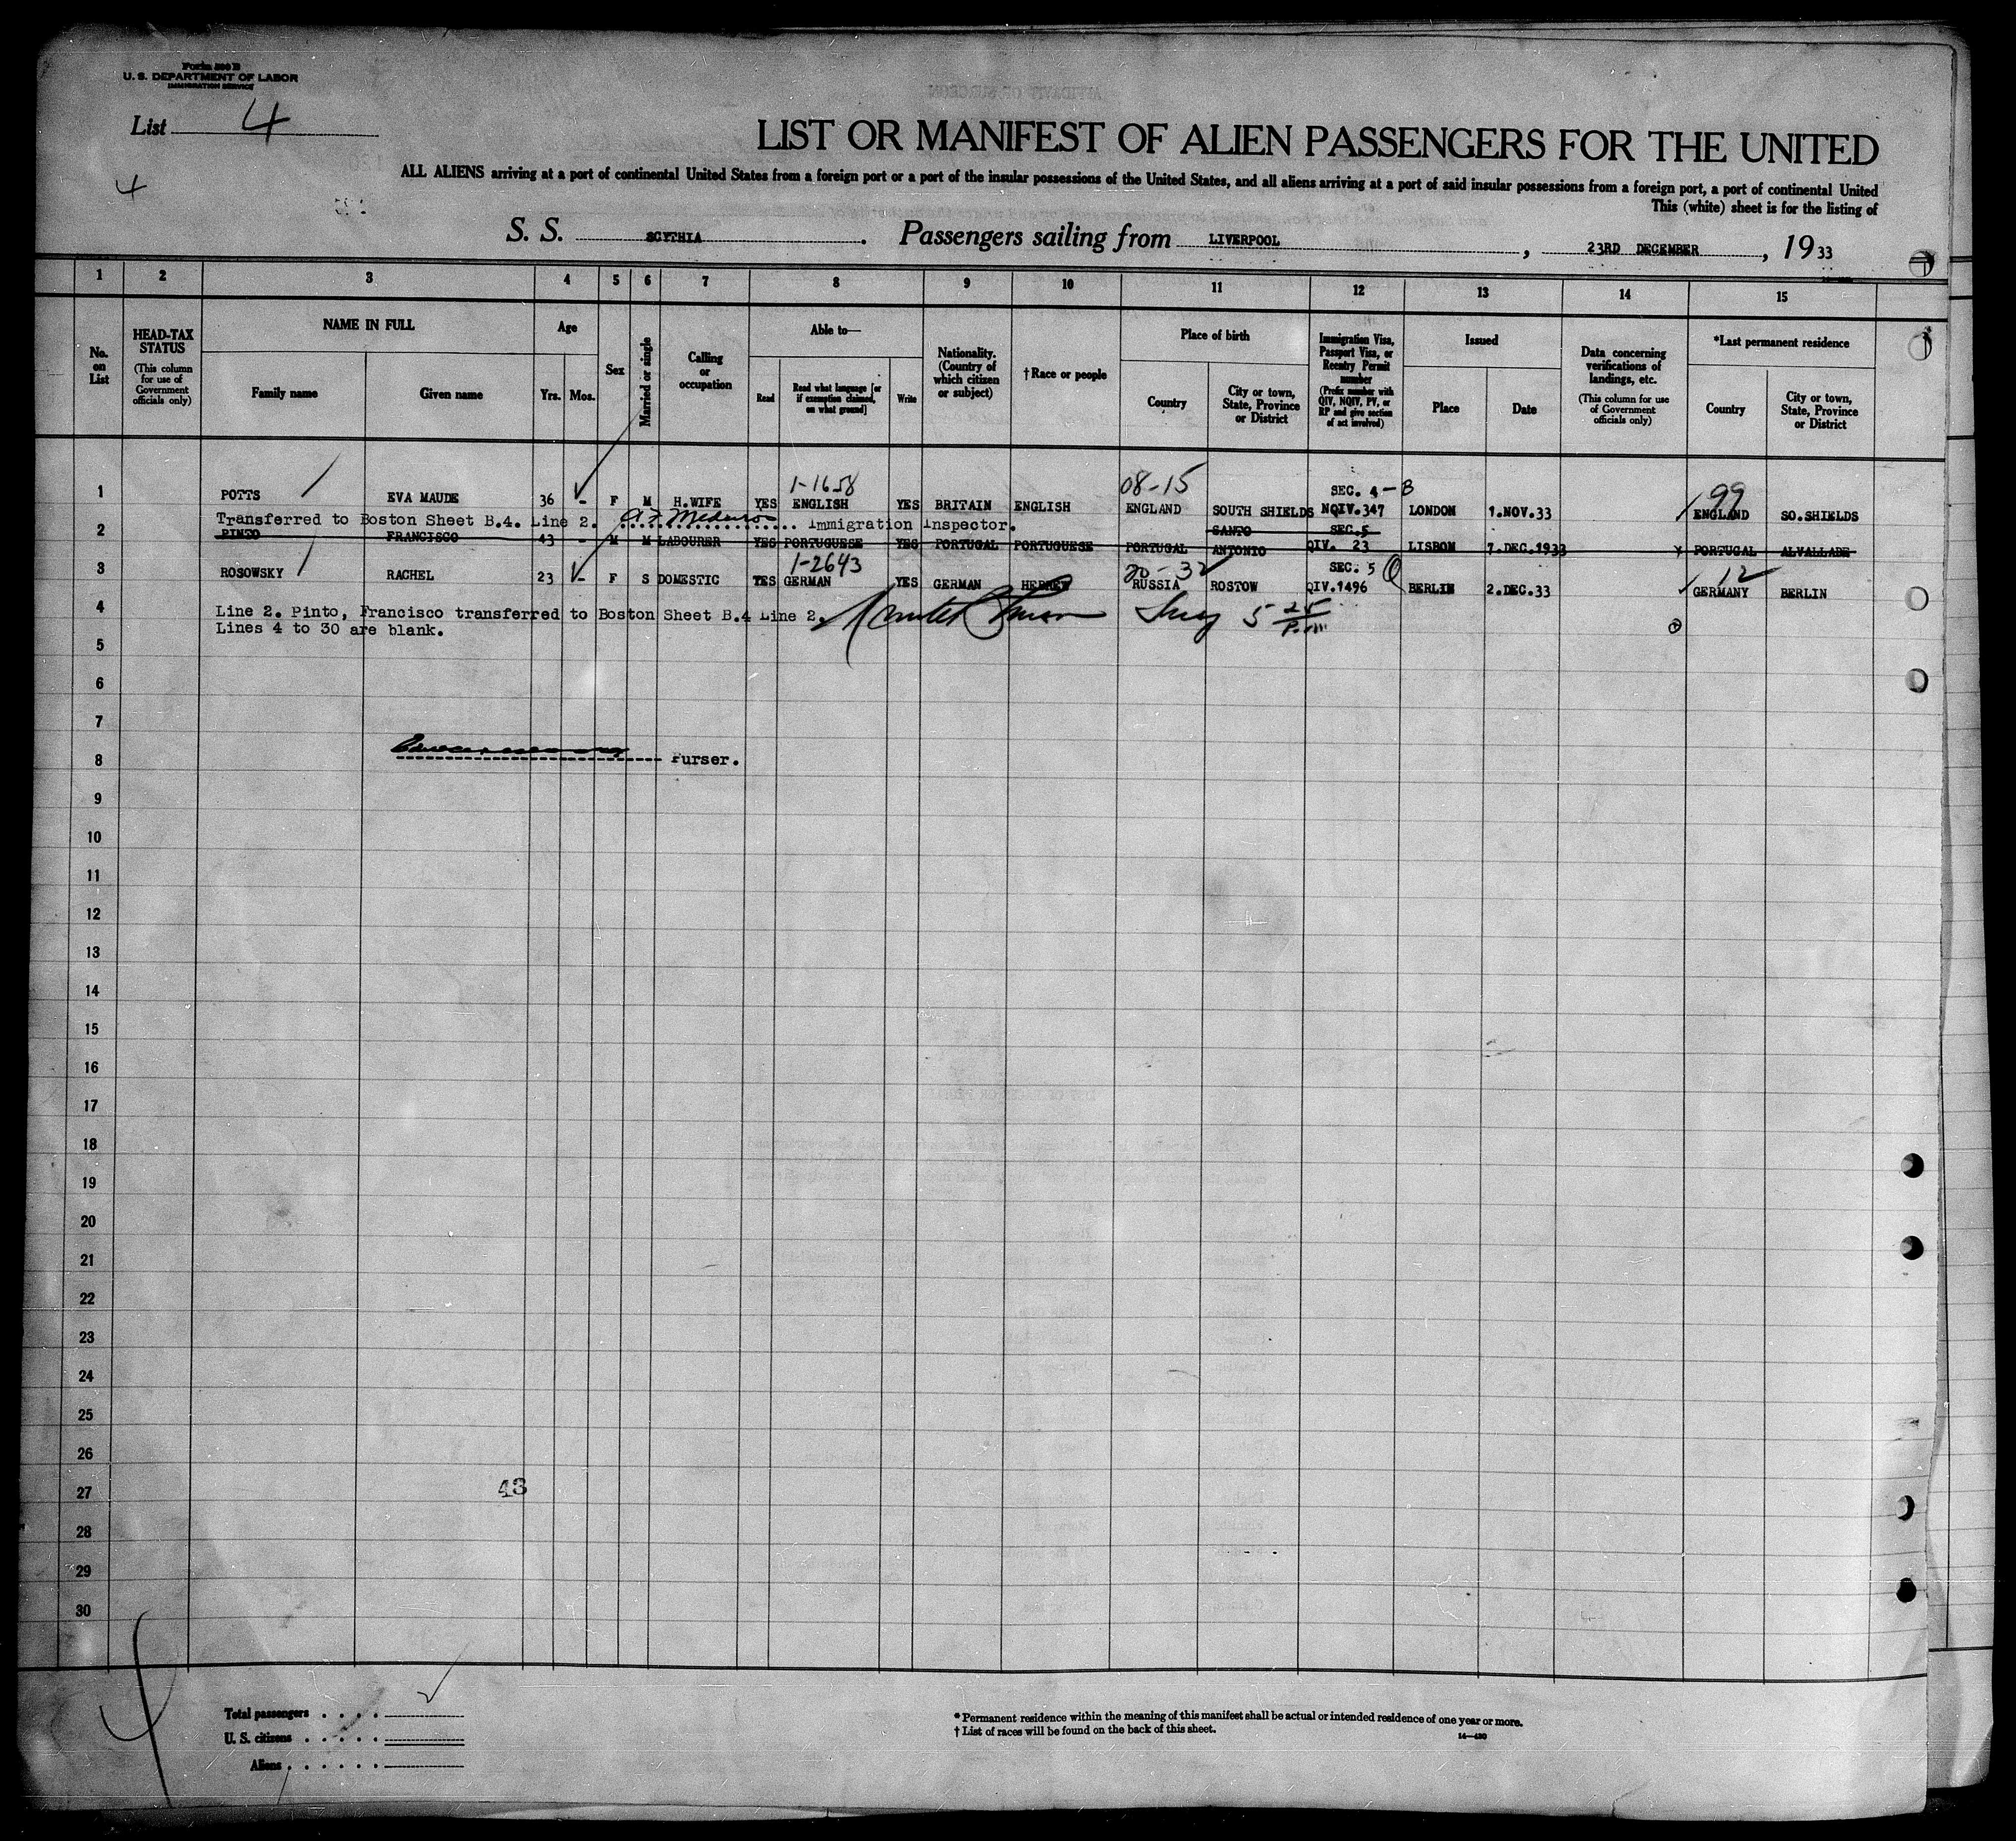 Form 500 B
U. S. DEPARTMENT OF LABOR
IMMIGRATION SERVICE
List 4
4
LIST OR MANIFEST OF ALIEN PASSENGERS FOR THE UNITED
ALL ALIENS arriving at a port of continental United States from a foreign port or a port of the insular possessions of the United States, and all aliens arriving at a port of said insular possessions from a foreign port, a port of continental United
This (white) sheet is for the listing of
S. S. SCYTHIA. Passengers sailing from LIVERPOOL, 23RD DECEMBER, 1933
1 2 3 4 5 6 7 8 9 10 11 12 13 14 15
No. on List
HEAD-TAX STATUS
(This column for use of Government officials only)
NAME IN FULL
Family name Given name
Age
Yrs. Mos.
Sex
Married or single
Calling or occupation
Able to—
Read Read what language [or if exemption claimed, on what ground] Write
Nationality. (Country of which citizen or subject)
†Race or people
Place of birth
Country City or town, State, Province or District
Immigration Visa, Passport Visa, or Reentry Permit number
(Prefix number with QIV, NQIV, PV, or RP and give section of act involved)
Issued
Place Date
Data concerning verifications of landings, etc.
(This column for use of Government officials only)
*Last permanent residence
Country City or town, State, Province or District
1-1658 08-15 SEC. 4-B 99
1 POTTS EVA MAUDE 36 - F M H.WIFE YES ENGLISH YES BRITAIN ENGLISH ENGLAND SOUTH SHIELDS NQIV.347 LONDON 1.NOV.33 ENGLAND SO.SHIELDS
Transferred to Boston Sheet B.4. Line 2. Immigration Inspector.
SANTO SEC.5
2 PINTO FRANCISCO 43 - M M LABOURER YES PORTUGUESE YES PORTUGAL PORTUGUESE PORTUGAL ANTONIO QIV. 23 LISBON 7.DEC.1933 PORTUGAL ALVALLADE
1-2643 20-32 SEC. 5 12
3 ROSOWSKY RACHEL 23 - F S DOMESTIC YES GERMAN YES GERMAN HEBREW RUSSIA ROSTOW QIV.1496 BERLIN 2.DEC.33 GERMANY BERLIN
4 Line 2. Pinto, Francisco transferred to Boston Sheet B.4 Line 2.
Lines 4 to 30 are blank.
5
6
7
8 Purser.
9
10
11
12
13
14
15
16
17
18
19
20
21
22
23
24
25
26
43
27
28
29
30
Total passengers
U. S. citizens
Aliens
*Permanent residence within the meaning of this manifest shall be actual or intended residence of one year or more.
†List of races will be found on the back of this sheet.
14—430